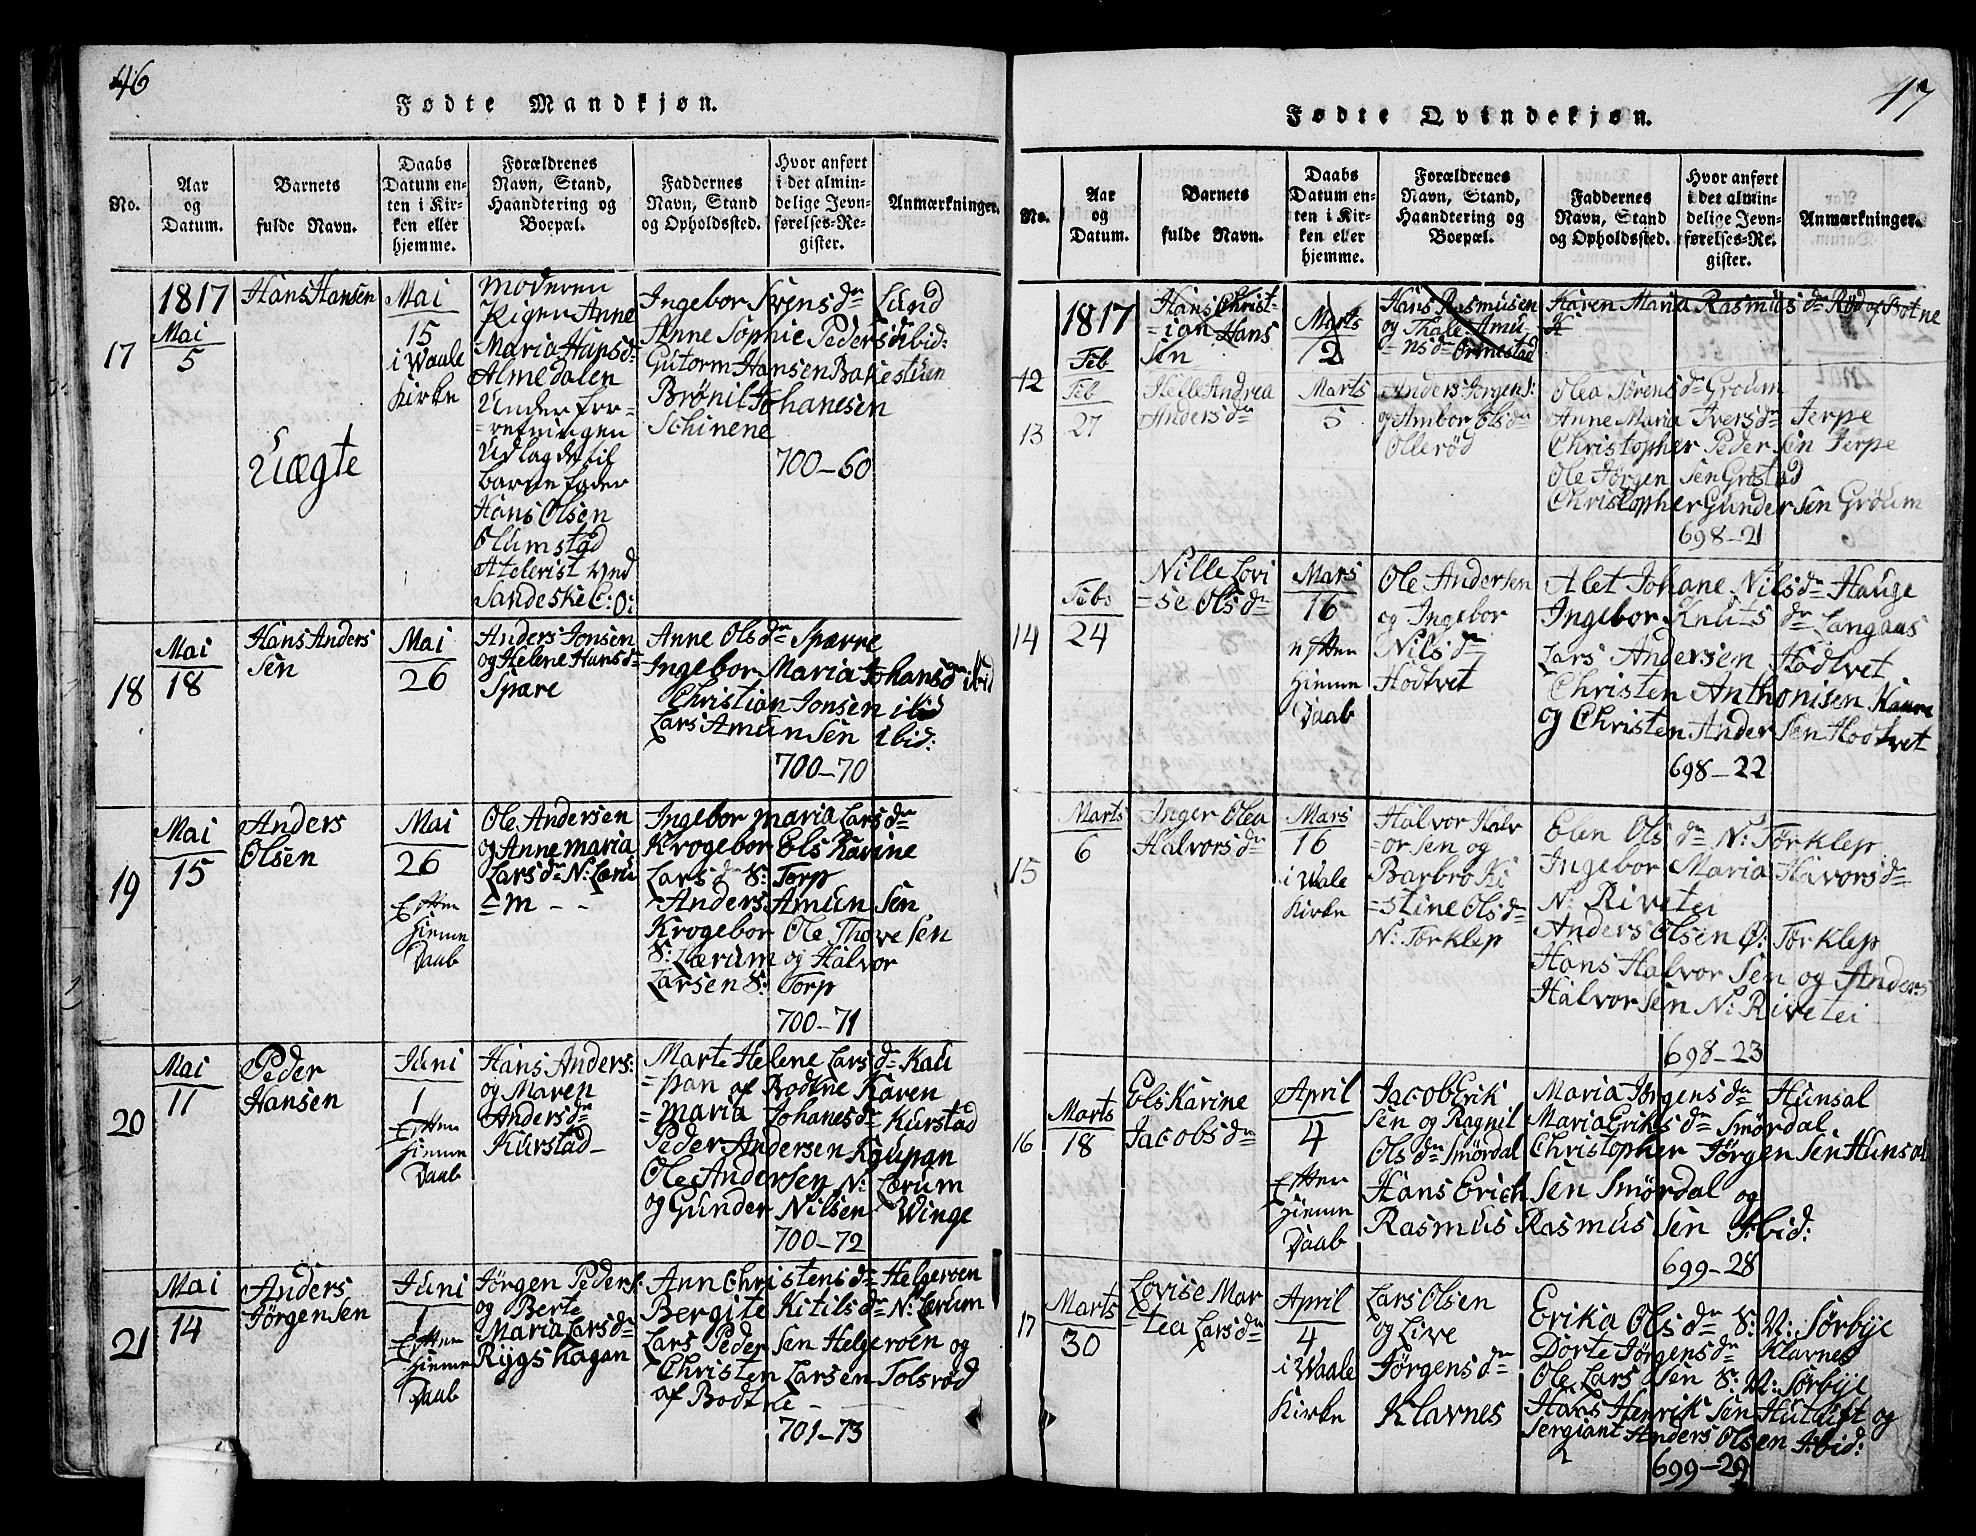 46
Fødte Mandkjøn.
No.
Aar
og
Datum.
Barnets
fulde Navn.
Daabs
Datum en-
ten i Kir-
ken eller
hjemme.
Forældrenes
Navn, Stand,
Haandtering og
Boepæl.
Faddernes
Navn, Stand
og Opholdssted.
Hvor anført
i det almin-
delige Jevn-
førelses-Re-
gister.
Anmærkninger.
17
1817
Mai
5
Hans Hansen
Uægte
Mai
15
i Waale
Kirke
Moderen
Pigen Anne
Maria Hansdr
Almedalen
Under for-
=retningen
Udlagde til
barne fader
Hans Olsen
Olumstad
Atelerist ved
Sandeske C: O:
Ingebor Svensdr Lund
Anne Sophie Peders ibid:
Gutorm Hansen Bakestuen
Brønil Johanesen
Schinene
700-60
18
Mai
18
Hans Anders
sen
Mai
26
Anders Jonsen
og Helene Hansdr
Spære
Anne Olsdr Spærre
Ingebor Maria Johansdr ibid
Christian Jonsen ibid
Lars Amundsen ibid:
700-70
19
Mai
15
Anders
Olsen
Mai
26
Efter
Hiemme
Daab
Ole Andersen
og Anne maria
Larsdr N: Læru
=m - -
Ingebor maria Larsdr
Krogebor Els Karine
Larsdr S: Torp
Anders Amunsen
Krogebor Ole Thoresen
S: Lærum og Halvor
Larsen S: Torp
700-71
20
Mai
11
Peder
Hansen
Juni
1
Efter
Hiemme
Daab
Hans Anders:
og Maren
Andersdr
Kurstad-
Marte Helene Larsdr Kau
=pan af Bodtne Karen
=maria Johanesdr Kurstad
Peder Andersen Kaupan
Ole Andersen N: Lærum
og Gunder Nilsen Winge
700-72
21
Mai
14
Anders
Jørgensen
Juni
1
Efter
Hiemme
Daab
Jørgen Peders:
og Berte
Maria Larsdr
Rygshagan
Ann Christensdr Helgeroen
Bergite Kitilsdr N: Lærum
Lars Pedersen Helgeroen og
Christen Larsen Tolsrød
af Bodtne -
701-73
47
Fødte Qvindekjøn.
No.
Aar
og
Datum.
Barnets
fulde Navn.
Daabs
Datum en-
ten i Kir-
ken eller
hjemme.
Forældrenes
Navn, Stand,
Haandtering og
Boepæl.
Faddernes
Navn, Stand
og Opholdssted.
Hvor anført
i det almin-
delige Jevn-
førelses-Re-
gister.
Anmærkninger.
12
1817
Feb
Hans Christ-
=ian Hans
sen
Marts
2
Hans Rasmusen
og Thale Amu-
nsdr Ormestad
Karen Maria Rasmusdr Rød af Botne
13
Feb
27
Helle Andrea
Andersdr
Marts
5
Anders Jørgens:
og Ambor Olsdr
Ollerød
Olea Sørensdr Groum
Anne Maria Iversdr Jerpe
Christopher Pedersen Jerpe
Ole Jørgensen Gristad
Christopher Gundersen Grøum
698-21
14
Feb
24
Nille Lovi
=se Olsdr
Mars
16
Efter
Hiemme
Daab
Ole Andersen
og Ingebor
Nilsdr
Hodtvet
Alet Johane Nilsdr Hauge
Ingebor Knutsdr Langaas
Lars Andersen Hodtvet
Christen Anthonisen
og Christen Andersen Hodtvet
698-22
15
Marts
6
Inger Olea
Halvorsdr
Mars
16
i Wale
Kirke
Halvor Halv
=orsen og
Barbro Ki
=stine Olsdr
N: Torklep
Elen Olsdr N: Torklep
Ingebor Maria Havorsdr
N: Rivetei
Anders Olsen Ø: Torklep
Hans Halvorsen og Anders
Halvorsen N: Rivetei
698-23
16
Marts
18
Els Karine
Jacobsdr
April
4
Efter
Hiemme
Daab
Jacob Erik
sen og Ragnil
Olsdr Smørdal
Maria Jørgensdr Hunsal
Maria Eriksdr Smørdal
Christopher Jørgensen Hunsal
Hans Erichsen Smørdal og
Rasmus Rasmussen Ibid:
699-28
17
Marts
30
Lovise Mar
=tea Larsdr
April
4
i Waale
Kirke
Lars Olsen
og Live
Jørgensdr
Klavnes
Erika Olsdr S: V: Sørbye
Dorte Jørgensdr Klavnes
Ole Larssen S: V: Sørbye
Hans Henriksen og
Sergiant Anders Olsen Ibid:
699-29